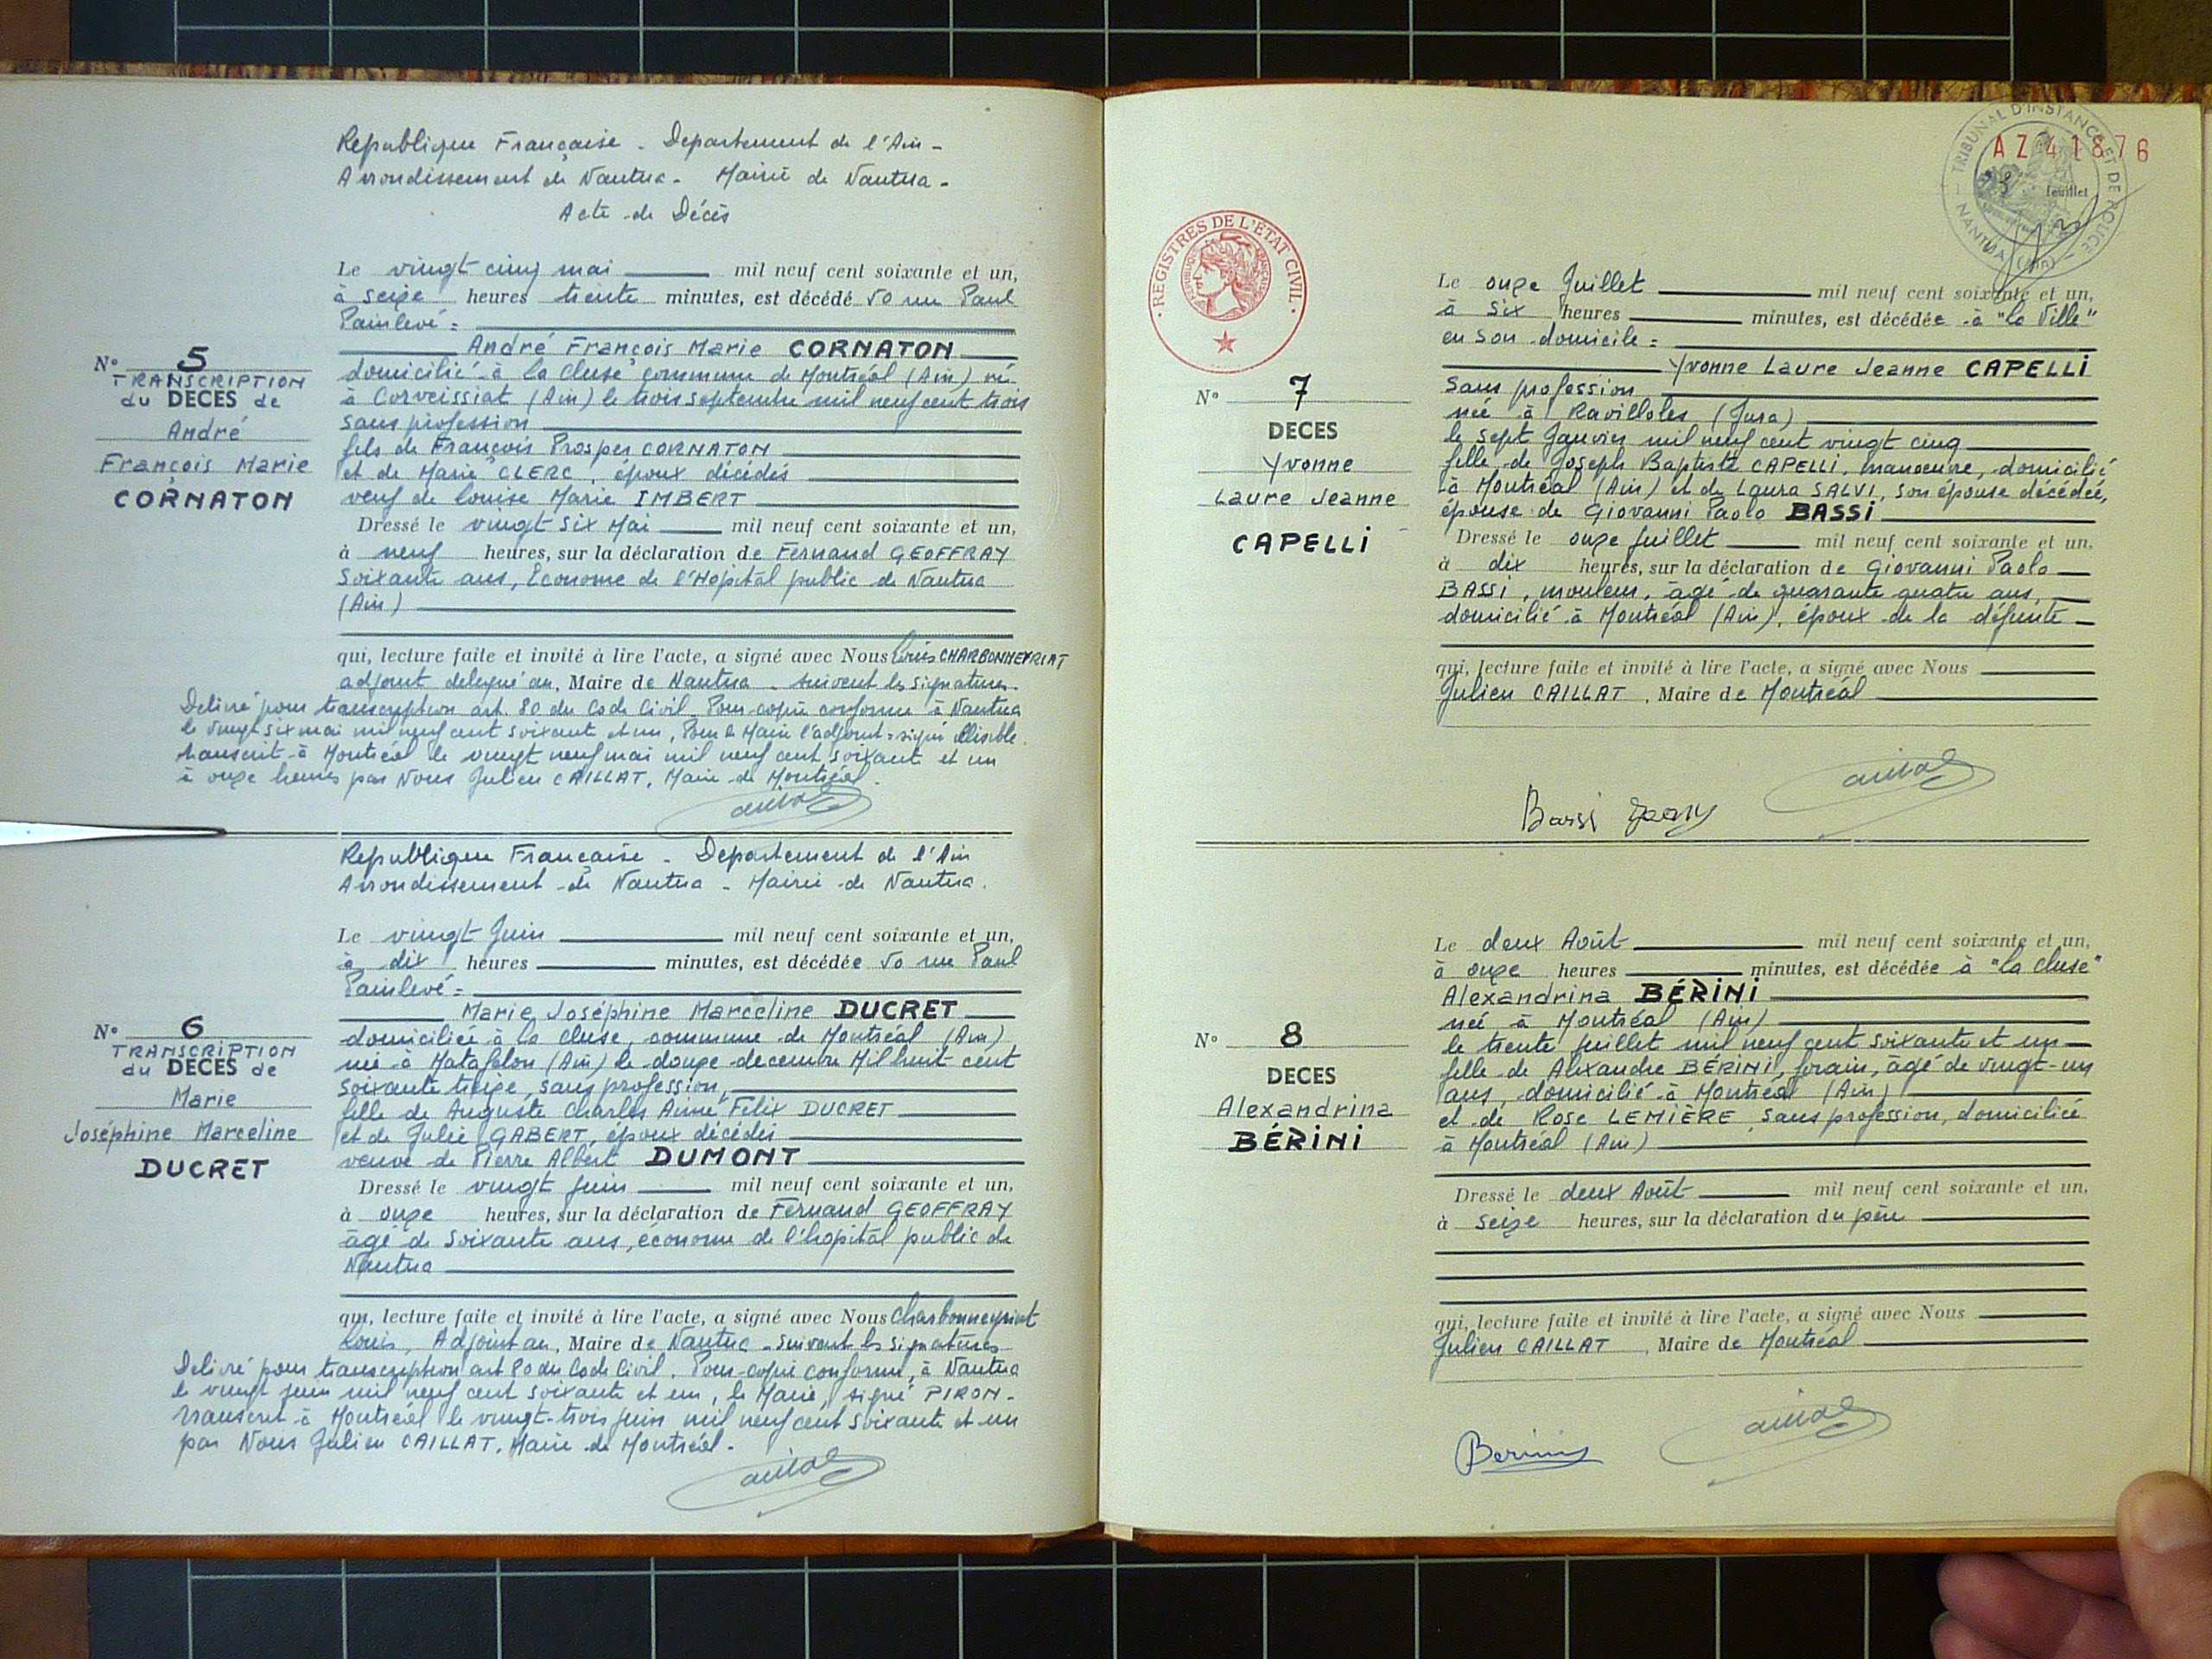 Republique Française - Departement de l'Ain -
Arrondissement de Nantua - Mairie de Nantua -
Acte de Décès
Le vingt cinq mai mil neuf cent soixante et un,
à seize heures trente minutes, est décédé 50 rue Paul
Painlevé =
André François Marie CORNATON
domicilié à la Cluse commune de Montréal (Ain) né
à Corveissiat (Ain) le trois septembre mil neuf cent trois
sans profession
fils de François Prosper CORNATON
et de Marie CLERC, époux décédés
veuf de Louise Marie IMBERT
Dressé le vingt six Mai mil neuf cent soixante et un,
à neuf heures, sur la déclaration de Fernand GEOFFRAY
soixante ans, Econome de l'Hopital public de Nantua
(Ain)
qui, lecture faite et invité à lire l'acte, a signé avec Nous Louis CHARBONNEYRIAT
adjoint delegué au, Maire de Nantua - suivent les signatures.
Delivré pour transcription art. 80 du Code Civil. Pour copie conforme à Nantua
le vingt six mai mil neuf cent soixante et un, Pour le Maire l'adjoint = signé illisible.
transcrit à Montréal le vingt neuf mai mil neuf cent soixante et un
à onze heures par Nous Julien CAILLAT, Maire de Montréal.
N° 5
TRANSCRIPTION
du DECES de
André
François Marie
CORNATON
Republique Française - Departement de l'Ain
Arrondissement de Nantua - Mairie de Nantua.
Le vingt Juin mil neuf cent soixante et un,
à dix heures minutes, est décédée 50 rue Paul
Painlevé =
Marie Joséphine Marceline DUCRET
domiciliée à la Cluse, commune de Montréal (Ain)
née à Matafelon (Ain) le douze decembre Mil huit cent
soixante treize, sans profession,
fille de Auguste Charles Aimé Felix DUCRET
et de Julie GABERT, époux décédés
veuve de Pierre Albert DUMONT
Dressé le vingt juin mil neuf cent soixante et un,
à onze heures, sur la déclaration de Fernand GEOFFRAY
âgé de soixante ans, économe de l'hopital public de
Nantua
qui, lecture faite et invité à lire l'acte, a signé avec Nous Charbonneyriat
Louis, Adjoint au, Maire de Nantua - suivent les signatures
Delivré pour transcription art 80 du Code Civil. Pour copie conforme, à Nantua
le vingt juin mil neuf cent soixante et un, le Maire, signé PIRON -
transcrit à Montréal le vingt-trois juin mil neuf cent soixante et un
par Nous Julien CAILLAT, Maire de Montréal -
N° 6
TRANSCRIPTION
du DECES de
Marie
Joséphine Marceline
DUCRET
TRIBUNAL D'INSTANCE ET DE POLICE
NANTUA (Ain)
feuillet
AZ 41876
REGISTRES DE L'ÉTAT CIVIL
RÉPUBLIQUE FRANÇAISE
Le onze Juillet mil neuf cent soixante et un,
à six heures minutes, est décédée à "la Ville"
en son domicile =
Yvonne Laure Jeanne CAPELLI
sans profession
née à Ravilloles (Jura)
le sept Janvier mil neuf cent vingt cinq
fille de Joseph Baptiste CAPELLI, manoeuvre, domicilié
à Montréal (Ain) et de Laura SALVI, son épouse décédée,
épouse de Giovanni Paolo BASSI
Dressé le onze juillet mil neuf cent soixante et un,
à dix heures, sur la déclaration de Giovanni Paolo
BASSI, mouleur, âgé de quarante quatre ans,
domicilié à Montréal (Ain), époux de la défunte
qui, lecture faite et invité à lire l'acte, a signé avec Nous
Julien CAILLAT, Maire de Montréal
N° 7
DECES
Yvonne
Laure Jeanne
CAPELLI
Bassi
Le deux Août mil neuf cent soixante et un,
à onze heures minutes, est décédée à "la Cluse"
Alexandrina BÉRINI
née à Montréal (Ain)
le trente juillet mil neuf cent soixante et un
fille de Alexandre BÉRINI, forain, âgé de vingt-un
ans, domicilié à Montréal (Ain)
et de Rose LEMIÈRE, sans profession, domiciliée
à Montréal (Ain)
Dressé le deux Août mil neuf cent soixante et un,
à seize heures, sur la déclaration du père
qui, lecture faite et invité à lire l'acte, a signé avec Nous
Julien CAILLAT, Maire de Montréal
N° 8
DECES
Alexandrina
BÉRINI